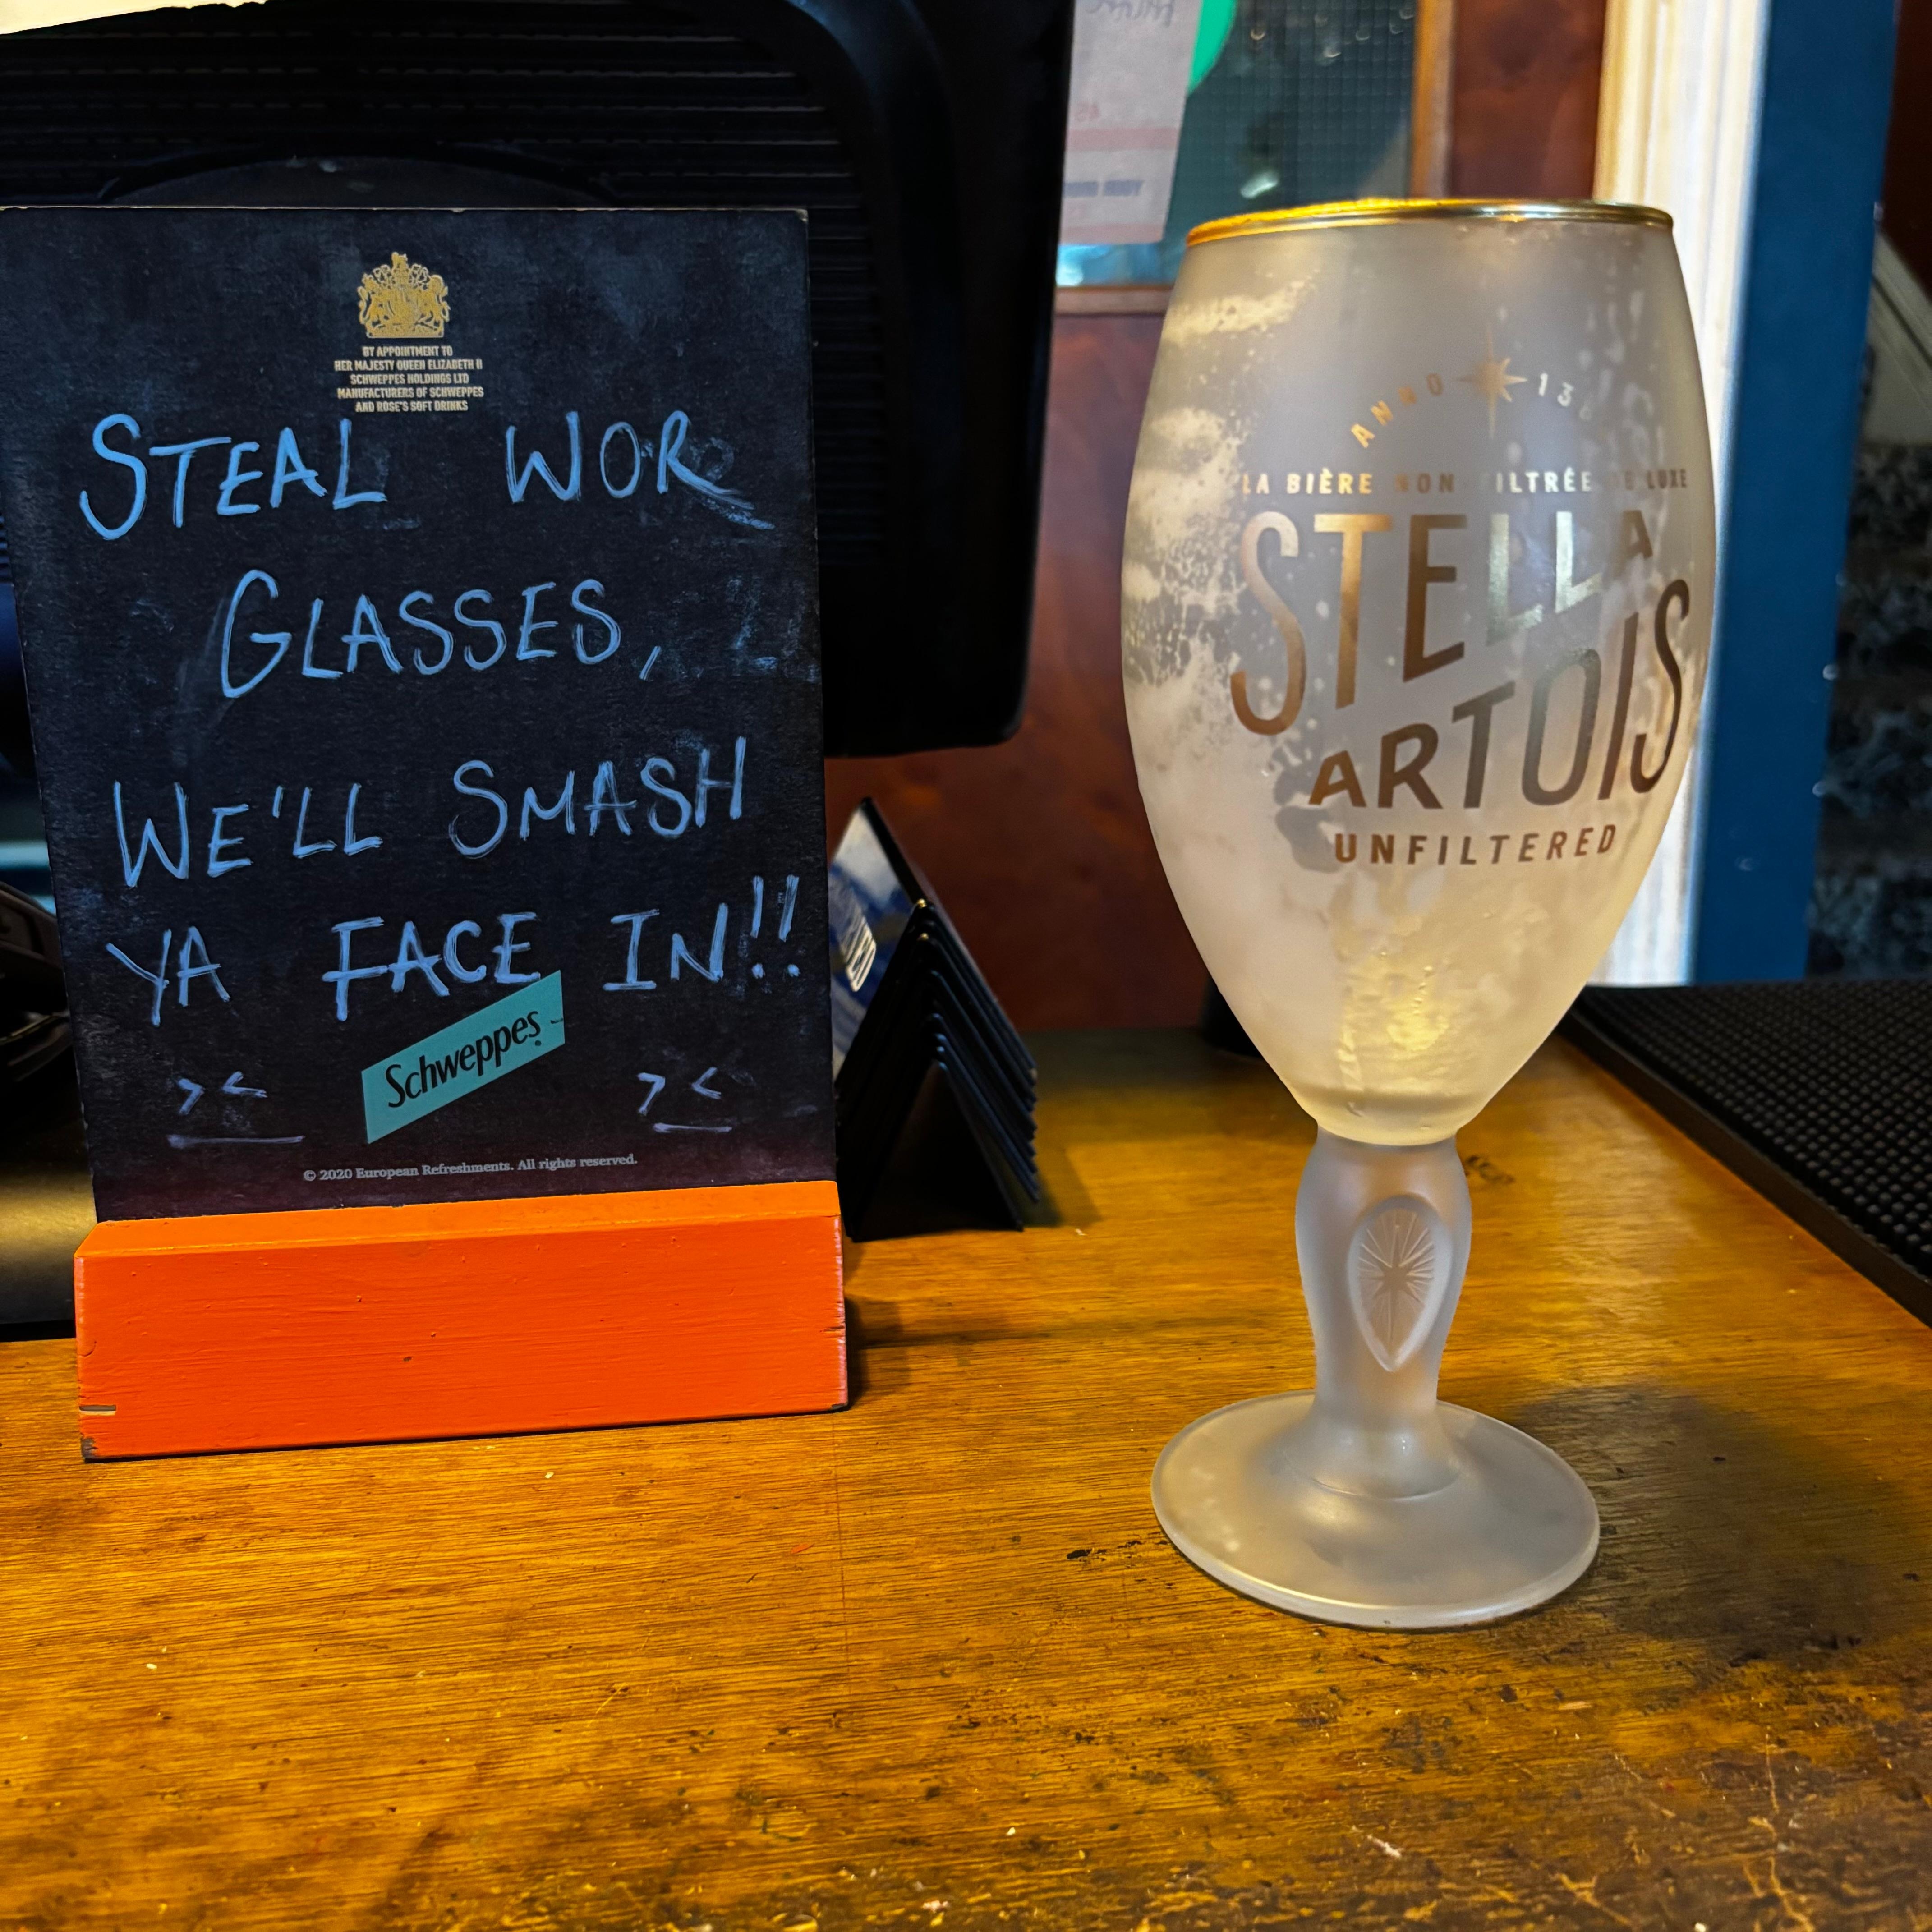 BY APPOINTMENT TO
HER MAJESTY QUEEN ELIZABETH II
SCHWEPPES HOLDINGS LTD
MANUFACTURERS OF SCHWEPPES
AND ROSE'S SOFT DRINKS
STEAL WOR
GLASSES,
WE'LL SMASH
YA FACE IN!!
Schweppes
>< ><
© 2020 European Refreshments. All rights reserved.
ANNO 136
LA BIÈRE NON FILTRÉE DE LUXE
STELLA
ARTOIS
UNFILTERED